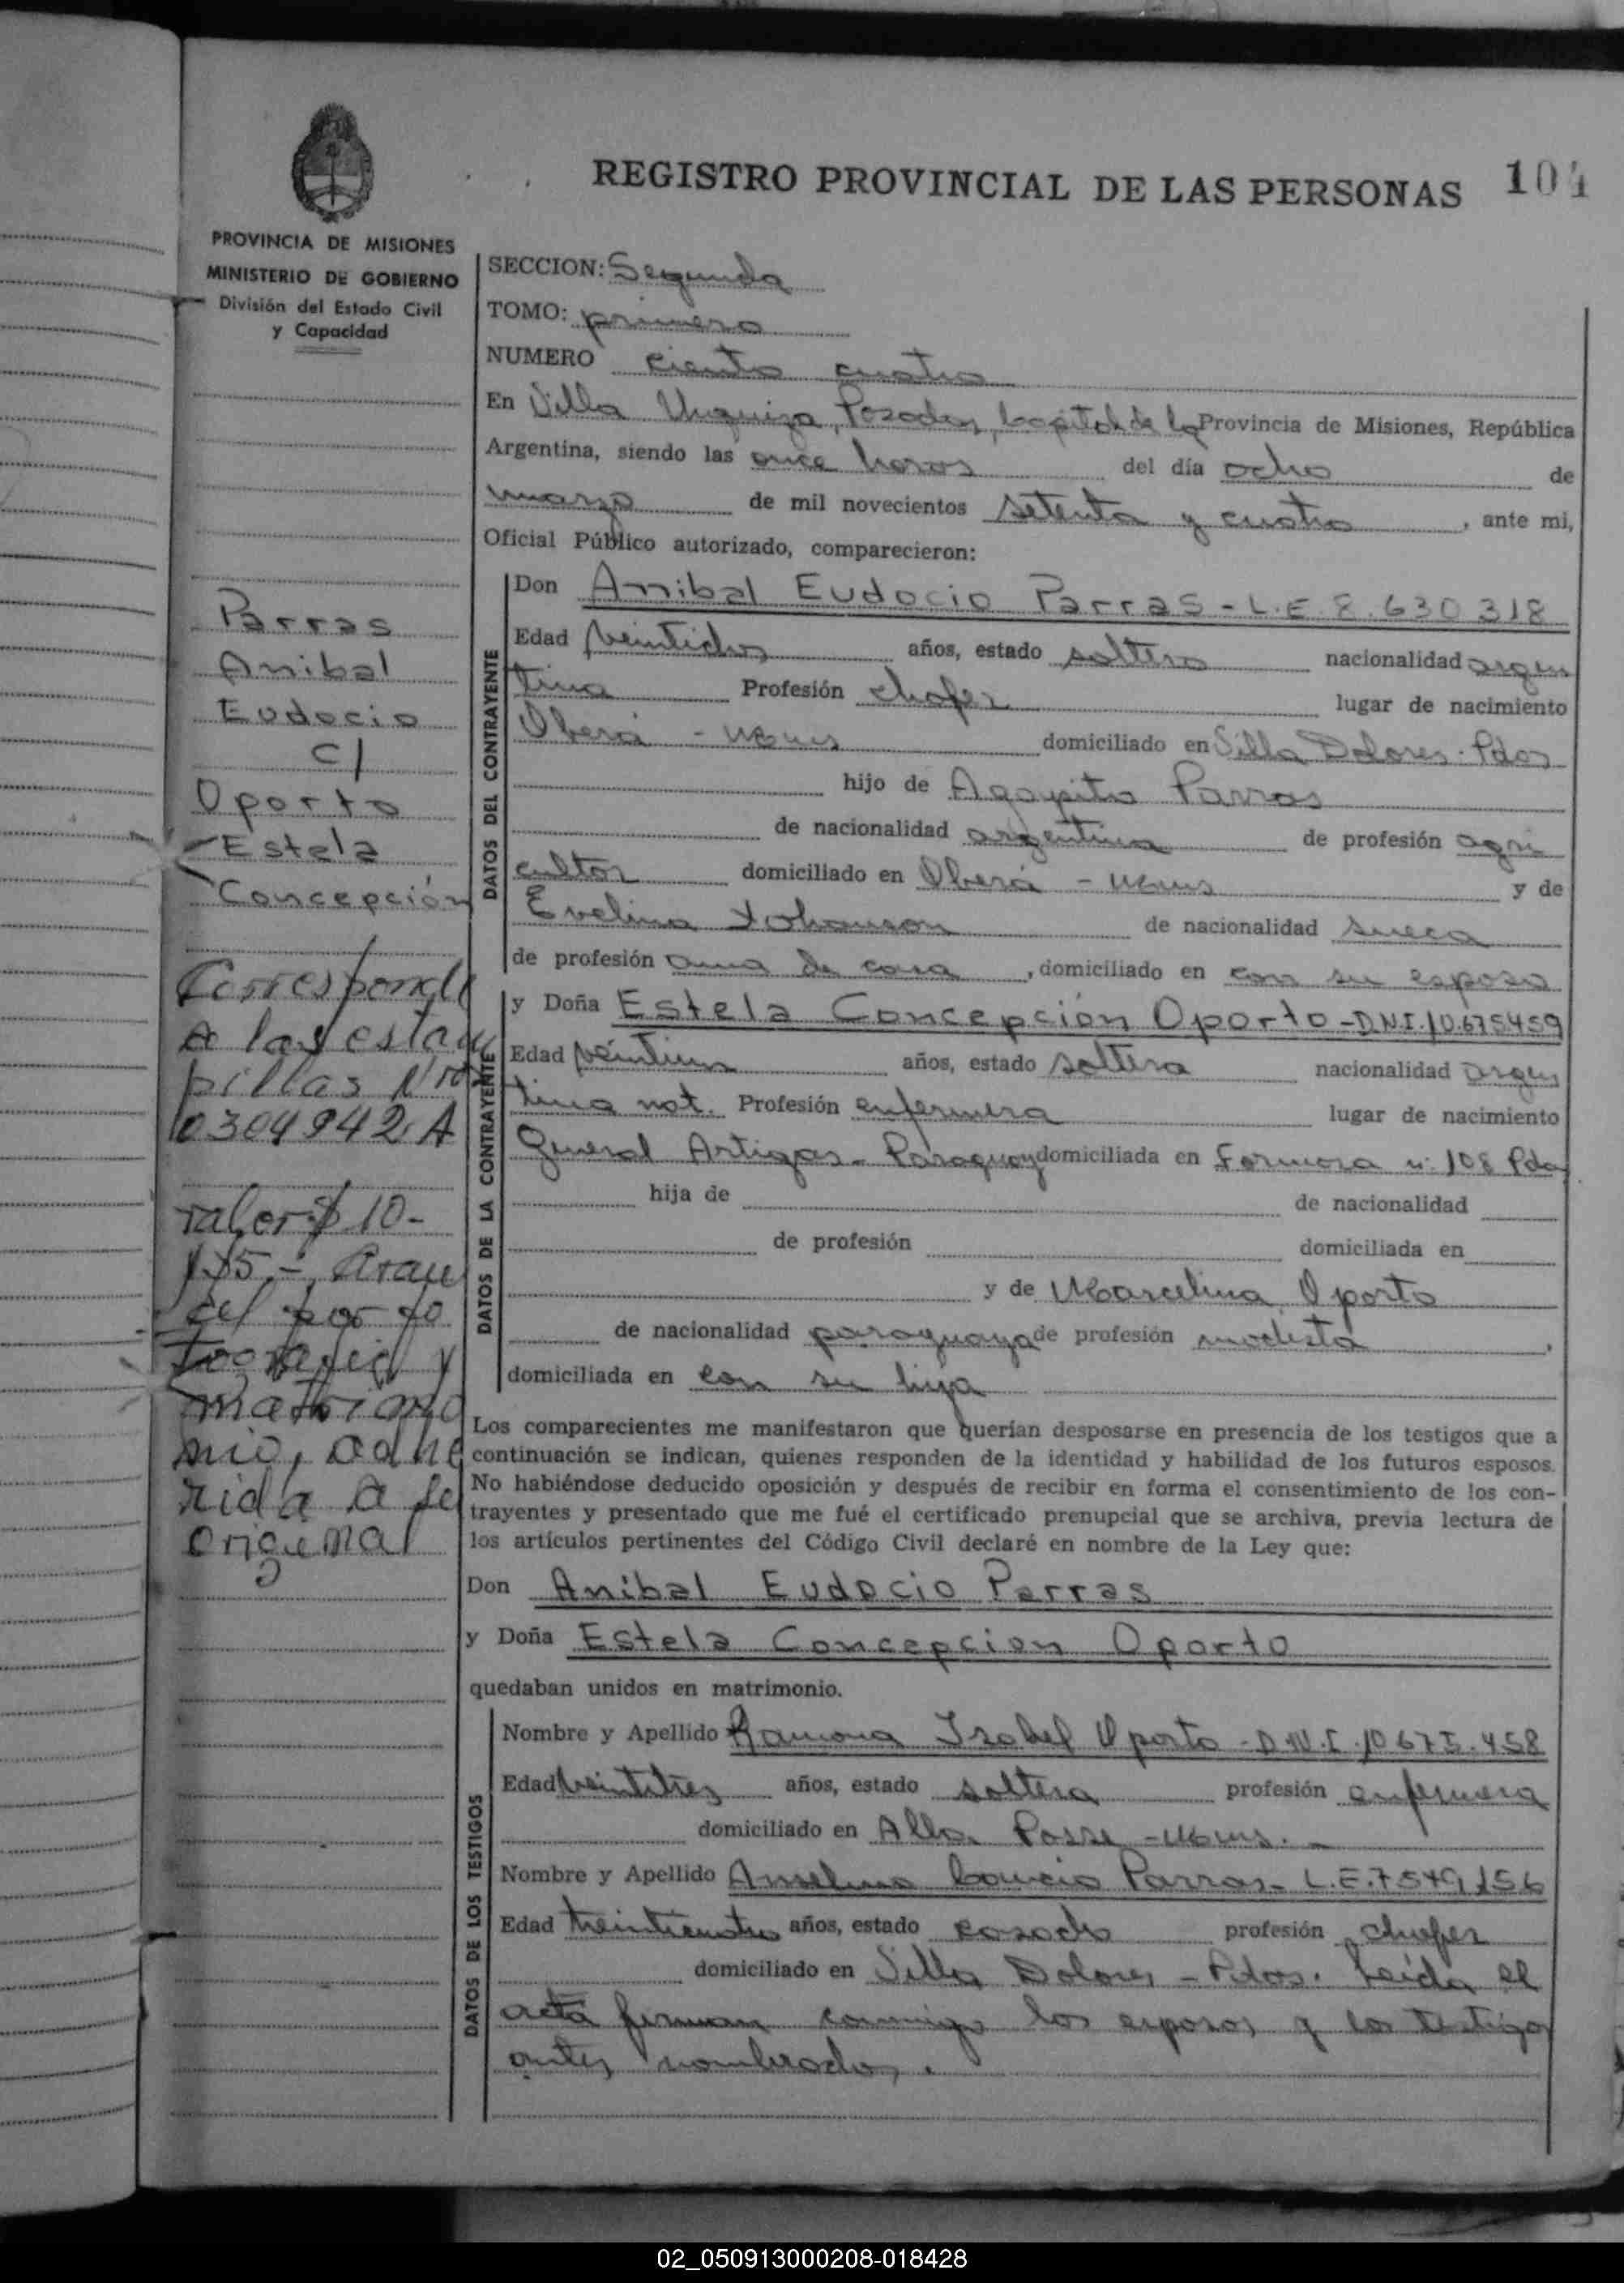 REGISTRO PROVINCIAL DE LAS PERSONAS 104
PROVINCIA DE MISIONES
MINISTERIO DE GOBIERNO
División del Estado Civil
y Capacidad
Parras
Anibal
Eudocio
c/
Oporto
Estela
Concepción
Corresponde
a las estam
pillas Nros
0304942 A
valor $ 10-
Aran
cel por fo
tografia y
matrimo
nio, adhe
rida a la
original
SECCION: Segunda
TOMO: primero
NUMERO ciento cuatro
En Villa Urquiza, Posadas, Capital de la Provincia de Misiones, República
Argentina, siendo las once horas del día ocho de
marzo de mil novecientos setenta y cuatro, ante mi,
Oficial Público autorizado, comparecieron:
DATOS DEL CONTRAYENTE
Don Anibal Eudocio Parras - L.E. 8.630.318
Edad veintidos años, estado soltero nacionalidad argen
tina Profesión chofer lugar de nacimiento
Oberá - Mnes domiciliado en Villa Dolores - Pdas
hijo de Agapito Parras
de nacionalidad argentina de profesión agri
cultor domiciliado en Oberá - Mnes y de
Evelina Johanson de nacionalidad sueca
de profesión ama de casa, domiciliado en con su esposo
DATOS DE LA CONTRAYENTE
y Doña Estela Concepción Oporto - D.N.I. 10.675459
Edad veintiun años, estado soltera nacionalidad argen
tina nat. Profesión enfermera lugar de nacimiento
General Artigas - Paraguay domiciliada en Formosa nº 108 Pdas
hija de de nacionalidad
de profesión domiciliada en
y de Marcelina Oporto
de nacionalidad paraguaya de profesión modista,
domiciliada en con su hija
Los comparecientes me manifestaron que querían desposarse en presencia de los testigos que a
continuación se indican, quienes responden de la identidad y habilidad de los futuros esposos.
No habiéndose deducido oposición y después de recibir en forma el consentimiento de los con-
trayentes y presentado que me fué el certificado prenupcial que se archiva, previa lectura de
los artículos pertinentes del Código Civil declaré en nombre de la Ley que:
Don Anibal Eudocio Parras
y Doña Estela Concepcion Oporto
quedaban unidos en matrimonio.
DATOS DE LOS TESTIGOS
Nombre y Apellido Ramona Isabel Oporto - D.N.I. 10.675.458
Edad veintitres años, estado soltera profesión enfermera
domiciliado en Alba Posse - Mnes.
Nombre y Apellido Anselmo Parras - L.E. 7549156
Edad treinticuatro años, estado casado profesión chofer
domiciliado en Villa Dolores - Pdas. Leída el
acta firman conmigo los esposos y los testigos
antes nombrados.
02_050913000208-018428